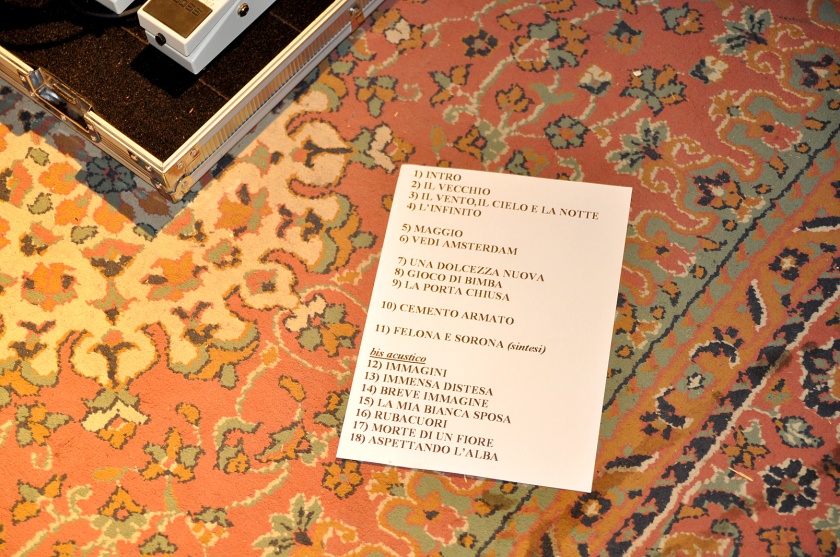 1) INTRO
2) IL VECCHIO
3) IL VENTO,IL CIELO E LA NOTTE
4) L'INFINITO
5) MAGGIO
6) VEDI AMSTERDAM
7) UNA DOLCEZZA NUOVA
8) GIOCO DI BIMBA
9) LA PORTA CHIUSA
10) CEMENTO ARMATO
11) FELONA E SORONA (sintesi)
bis acustico
12) IMMAGINI
13) IMMENSA DISTESA
14) BREVE IMMAGINE
15) LA MIA BIANCA SPOSA
16) RUBACUORI
17) MORTE DI UN FIORE
18) ASPETTANDO L'ALBA